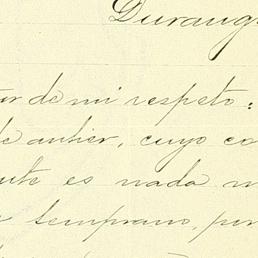 Durang
or de mi respeto:
de antier, cuyo co
ute es nada m
temprano, por